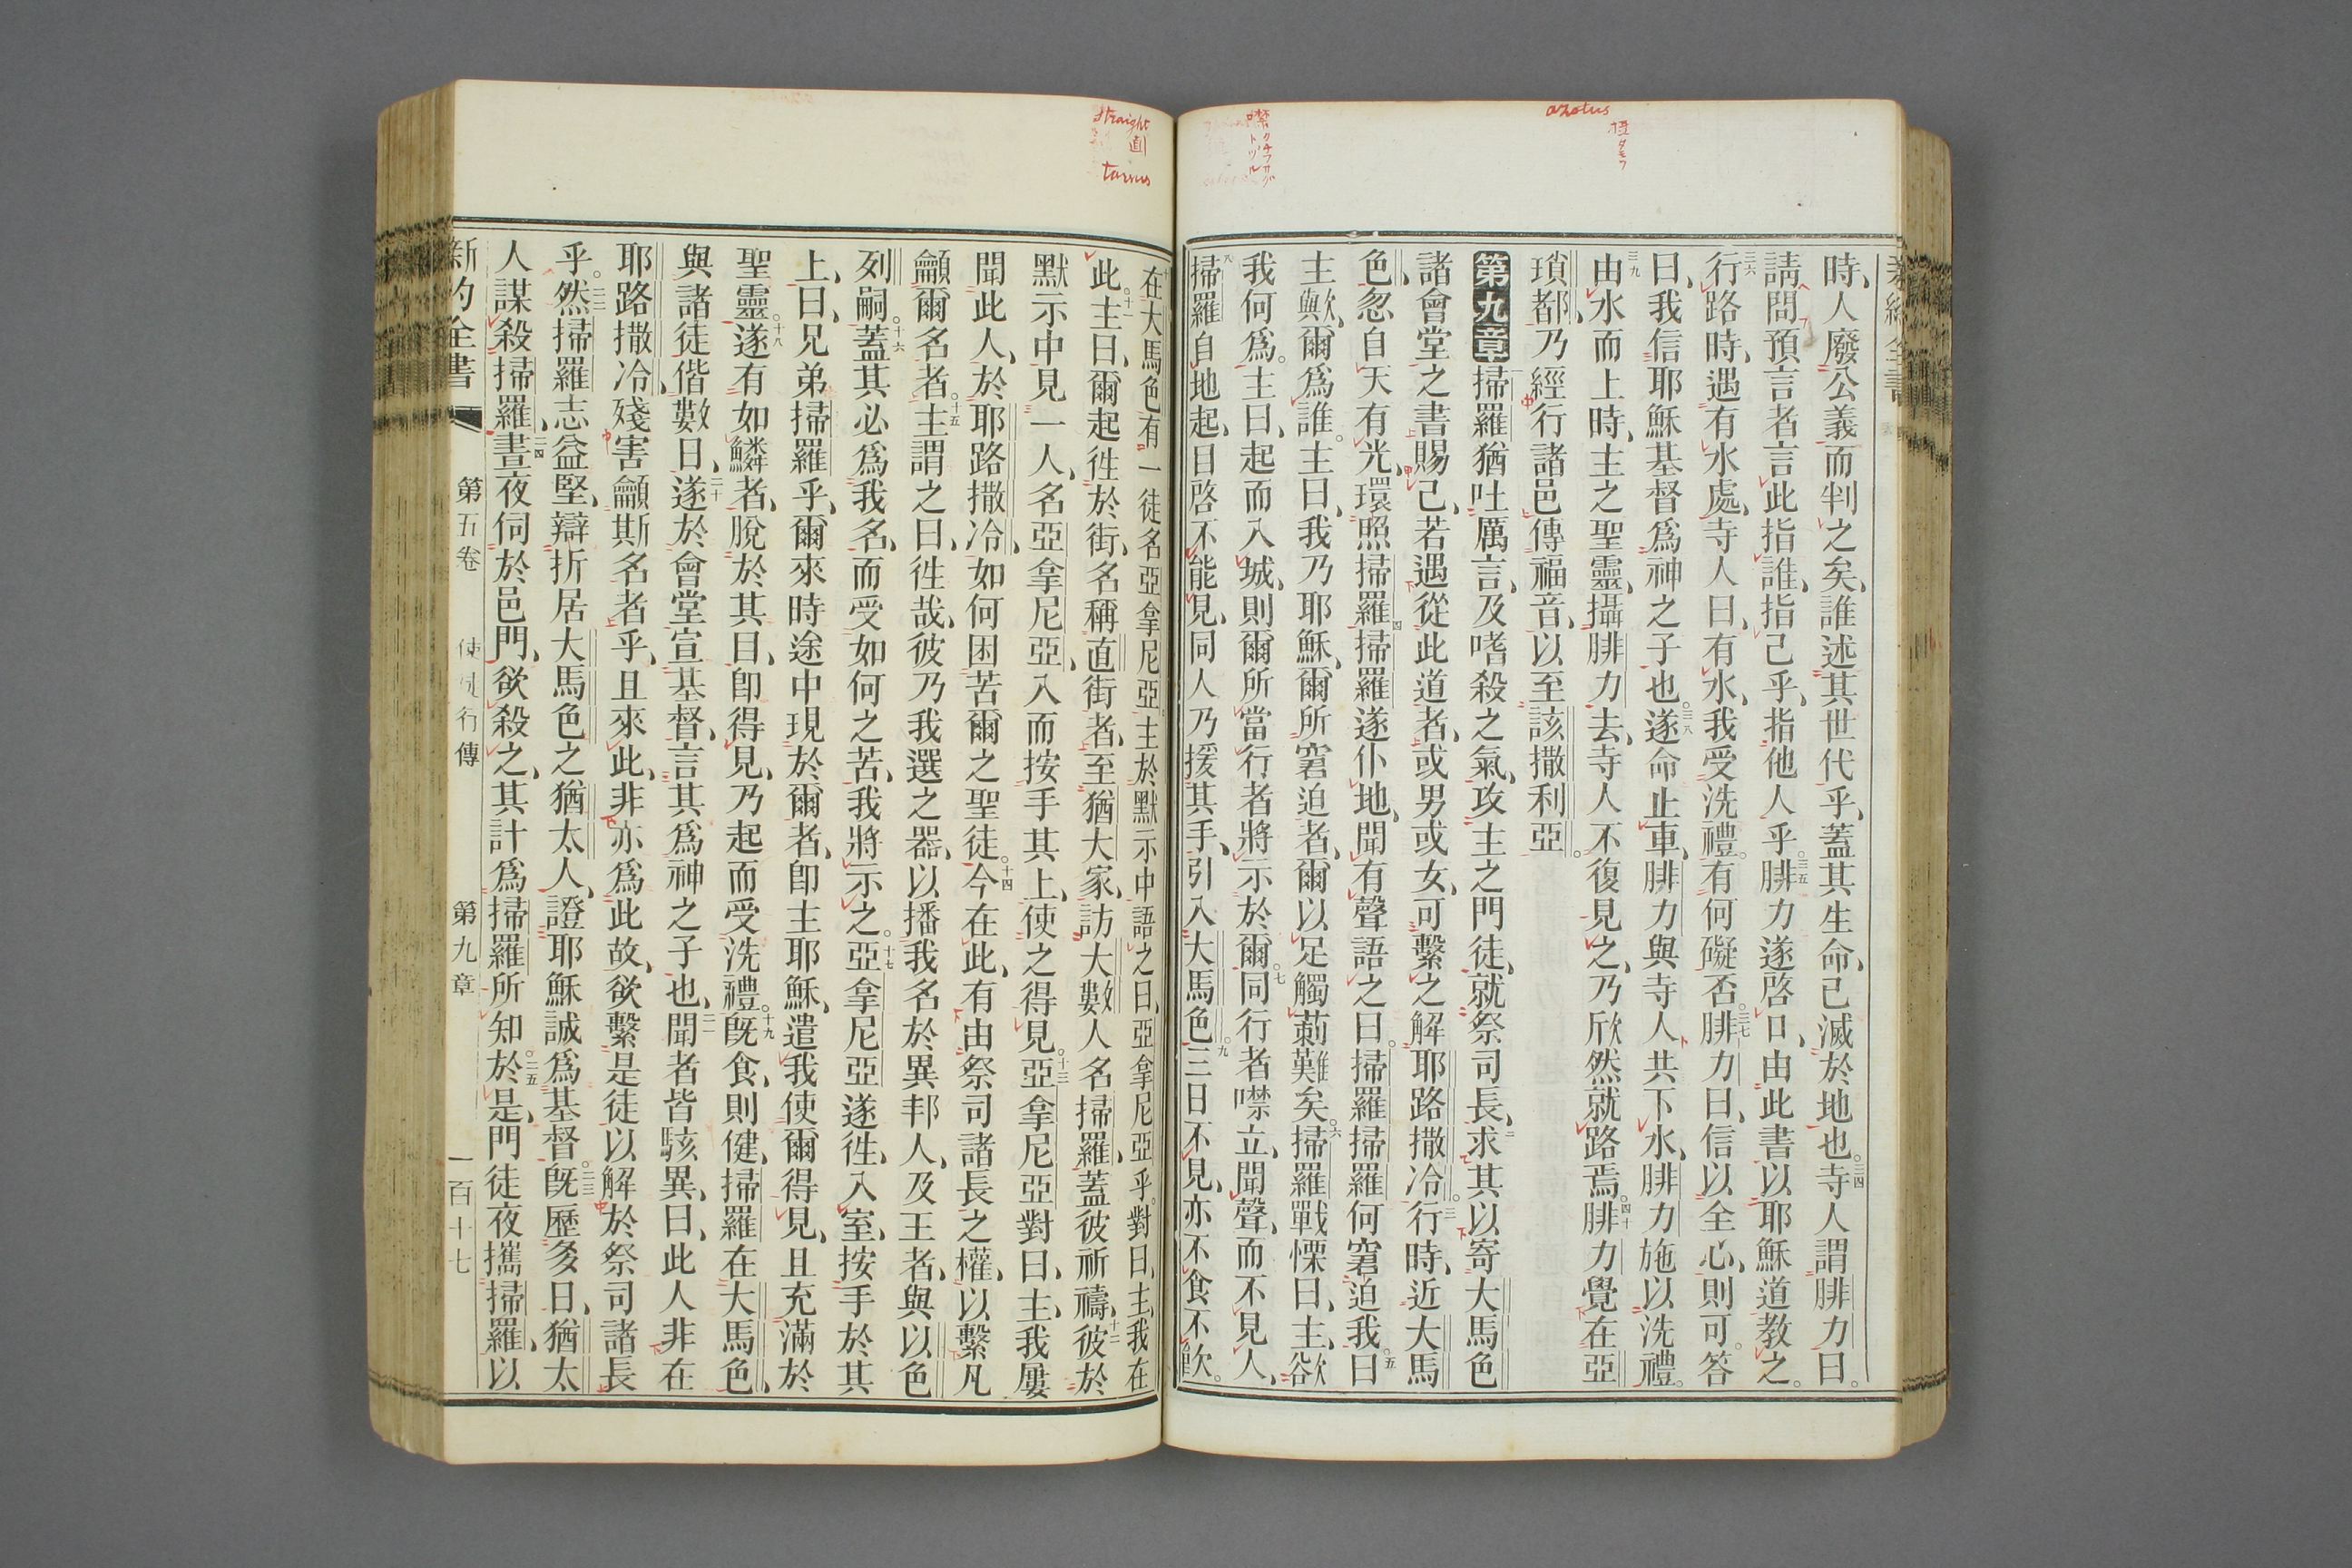 azotus
噤
クチフサグ
トヅル
時、人廢公義而判之矣、誰述其世代乎、蓋其生命、己滅於地也。三四寺人謂腓力曰。
請問預言者言此指誰、指己乎、指他人乎。三五腓力遂啓口、由此書以耶穌道教之。
三六行路時、遇有水處、寺人曰、有水、我受洗禮。有何礙否。三七腓力曰、信以全心、則可。答
曰、我信耶穌基督爲神之子也。三八遂命止車、腓力與寺人共下水、腓力施以洗禮。
三九由水而上時、主之聖靈、攝腓力去、寺人不復見之、乃欣然就路焉。四十腓力覺在亞
瑣都、乃經行諸邑傳福音、以至該撒利亞。
第九章 一掃羅猶吐厲言、及嗜殺之氣、攻主之門徒、就祭司長、二求其以寄大馬色
諸會堂之書賜己、若遇從此道者、或男或女、可繫之解耶路撒冷。三行時、近大馬
色、忽自天有光、環照掃羅四掃羅遂仆地、聞有聲語之曰。掃羅掃羅何窘迫我五曰
主歟、爾爲誰。主曰、我乃耶穌、爾所窘迫者、爾以足觸蒺藜難矣。六掃羅戰慄曰、主、欲
我何爲。主曰、起而入城、則爾所當行者將示於爾。七同行者噤立、聞聲、而不見人、
八掃羅自地起、目啓不能見、同人乃援其手、引入大馬色。九三日不見、亦不食不飲。
straight
直
tarsus
十在大馬色有一徒名亞拿尼亞、主於默示中語之曰、亞拿尼亞乎。對曰、主、我在
此。十一主曰、爾起徃於街、名稱直街者、至猶大家、訪大數人名掃羅、蓋彼祈禱、十二彼於
默示中見一人、名亞拿尼亞、入而按手其上、使之得見。十三亞拿尼亞對曰、主、我屢
聞此人、於耶路撒冷、如何困苦爾之聖徒。十四今在此、有由祭司諸長之權、以繫凡
籲爾名者。十五主謂之曰、徃哉、彼乃我選之器、以播我名於異邦人、及王者、與以色
列嗣。十六蓋其必爲我名、而受如何之苦、我將示之。十七亞拿尼亞遂徃、入室、按手於其
上、曰、兄弟掃羅乎、爾來時途中現於爾者、卽主耶穌、遣我使爾得見、且充滿於
聖靈。十八遂有如鱗者、脫於其目、卽得見、乃起而受洗禮。十九旣食、則健、掃羅在大馬色、
與諸徒偕數日、二十遂於會堂宣基督、言其爲神之子也、二一聞者皆駭異、曰、此人非在
耶路撒冷、殘害籲斯名者乎、且來此、非亦爲此故、欲繫是徒以解於祭司諸長
乎。二二然掃羅志益堅、辯折居大馬色之猶太人、證耶穌誠爲基督。二三旣歷多日、猶太
人謀殺掃羅、二四晝夜伺於邑門、欲殺之、其計爲掃羅所知於是、二五門徒夜攜掃羅、以
新約全書 第五卷 使徒行傳 第九章 一百十七